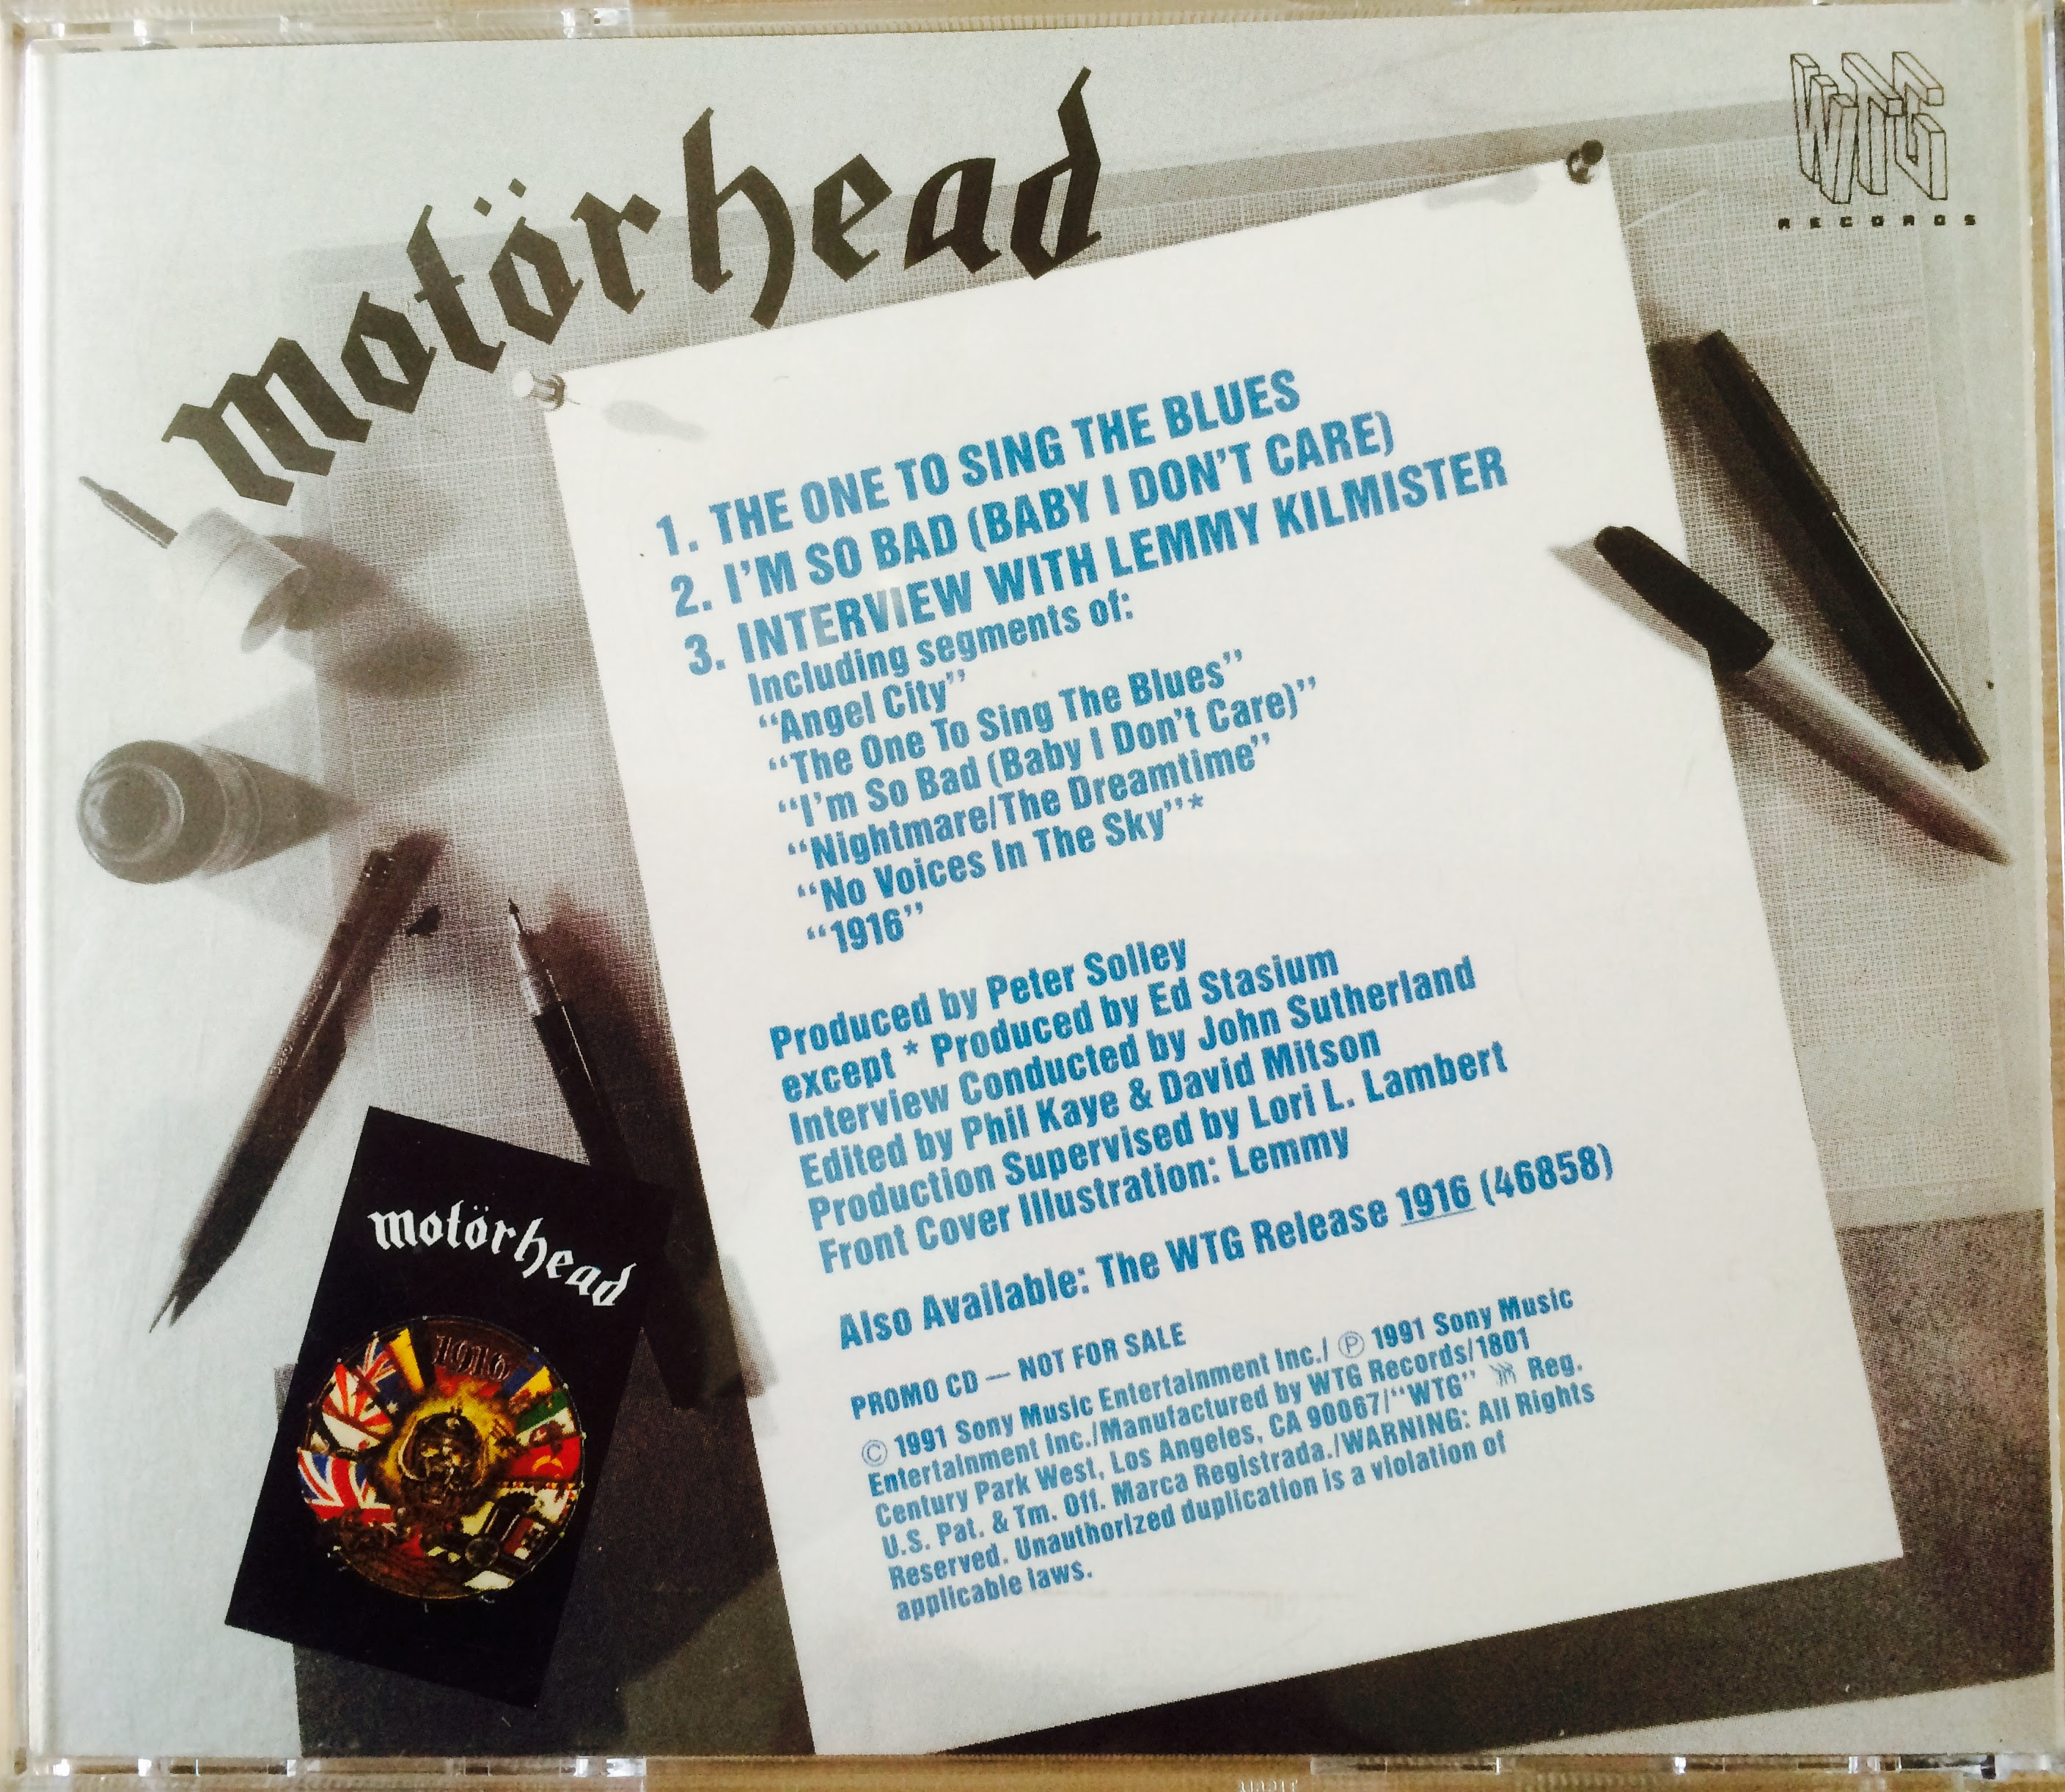 motörhead
WTG
RECORDS
1. THE ONE TO SING THE BLUES
2. I'M SO BAD (BABY I DON'T CARE)
3. INTERVIEW WITH LEMMY KILMISTER
Including segments of:
“Angel City”
“The One To Sing The Blues”
“I'm So Bad (Baby I Don't Care)”
“Nightmare/The Dreamtime”
“No Voices In The Sky”*
“1916”
Produced by Peter Solley
except * Produced by Ed Stasium
Interview Conducted by John Sutherland
Edited by Phil Kaye & David Mitson
Production Supervised by Lori L. Lambert
Front Cover Illustration: Lemmy
Also Available: The WTG Release 1916 (46858)
PROMO CD — NOT FOR SALE
© 1991 Sony Music Entertainment Inc./ ℗ 1991 Sony Music
Entertainment Inc./Manufactured by WTG Records/1801
Century Park West, Los Angeles, CA 90067/“WTG” Reg.
U.S. Pat. & Tm. Off. Marca Registrada./WARNING: All Rights
Reserved. Unauthorized duplication is a violation of
applicable laws.
motörhead
1916